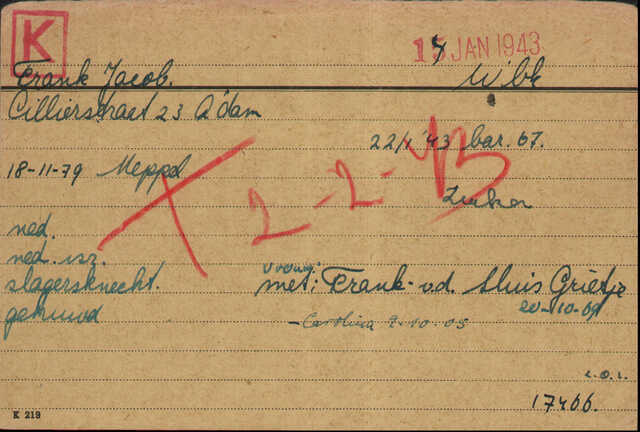 K
15 JAN 1943
Frank Jacob.
Wbk
Cillierstraat 23 A'dam
22/1 '43 bar. 67.
18-11-79 Meppel
T 2-2-43
ned.
ned. isr.
vrouw:
slagersknecht.
met: Frank-v.d. Sluis Grietje
20-10-09
gehuwd
- Carolina 9-10-05
L.O.L.
17466.
K 219